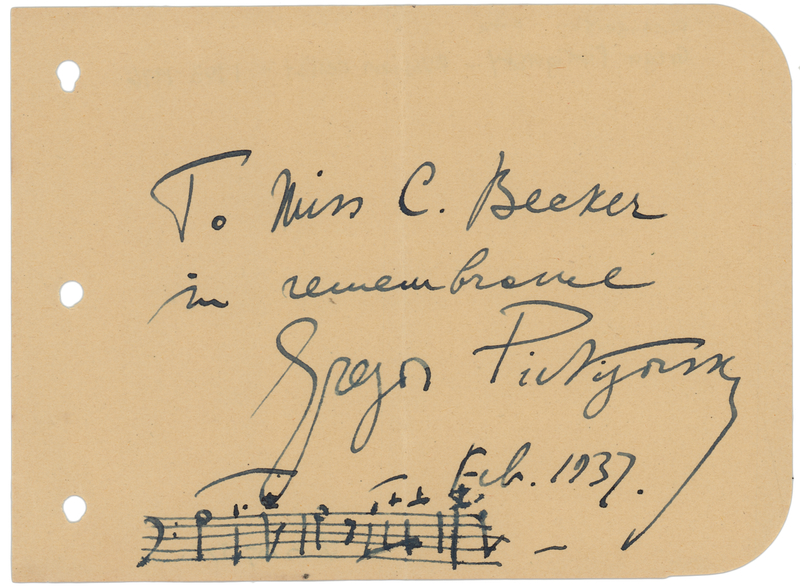 To Miss C. Becker
in remembrance
Gregor Piatigorsky
Feb. 1937.